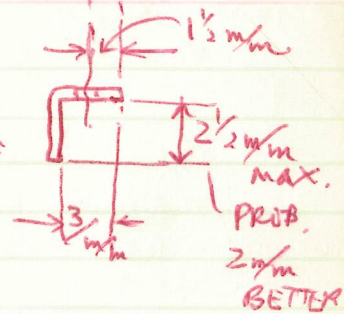 1½ m/m
2½ m/m
MAX.
PROB.
2 m/m
BETTER
3 m/m